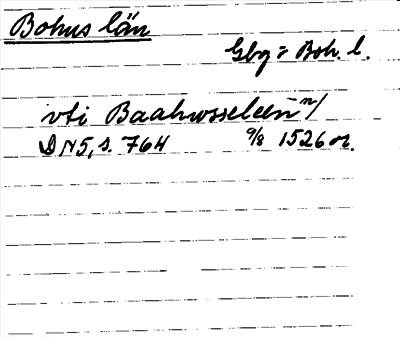 Bohus län
Gbg o Boh. l.
vti Baahwsseleen n/
DN 5, s. 764 9/8 1526 or.